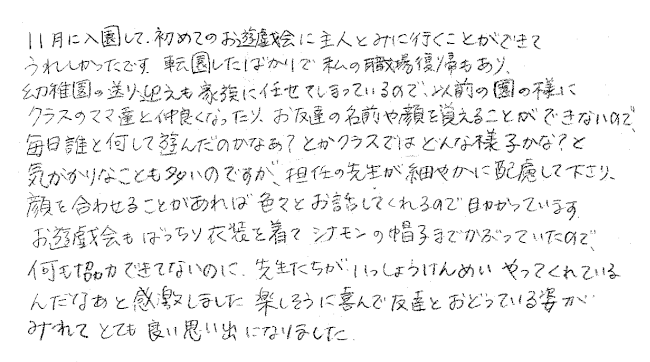 11月に入園して、初めてのお遊戯会に主人とみに行くことができて
うれしかったです。転園したばかりで私の職場復帰もあり、
幼稚園の送り迎えも家族に任せてしまっているので、以前の園の様に
クラスのママ達と仲良くなったり、お友達の名前や顔を覚えることができないので、
毎日誰と何して遊んだのかなあ?とかクラスではどんな様子かな?と
気がかりなことも多いのですが、担任の先生が細やかに配慮して下さり、
顔を合わせることがあれば色々とお話してくれるので助かっています。
お遊戯会もばっちり衣装を着てシナモンの帽子までかぶっていたので、
何も協力できてないのに、先生たちがいっしょうけんめいやってくれている
んだなあと感激しました。楽しそうに喜んで友達とおどっている姿が
みれてとても良い思い出になりました。